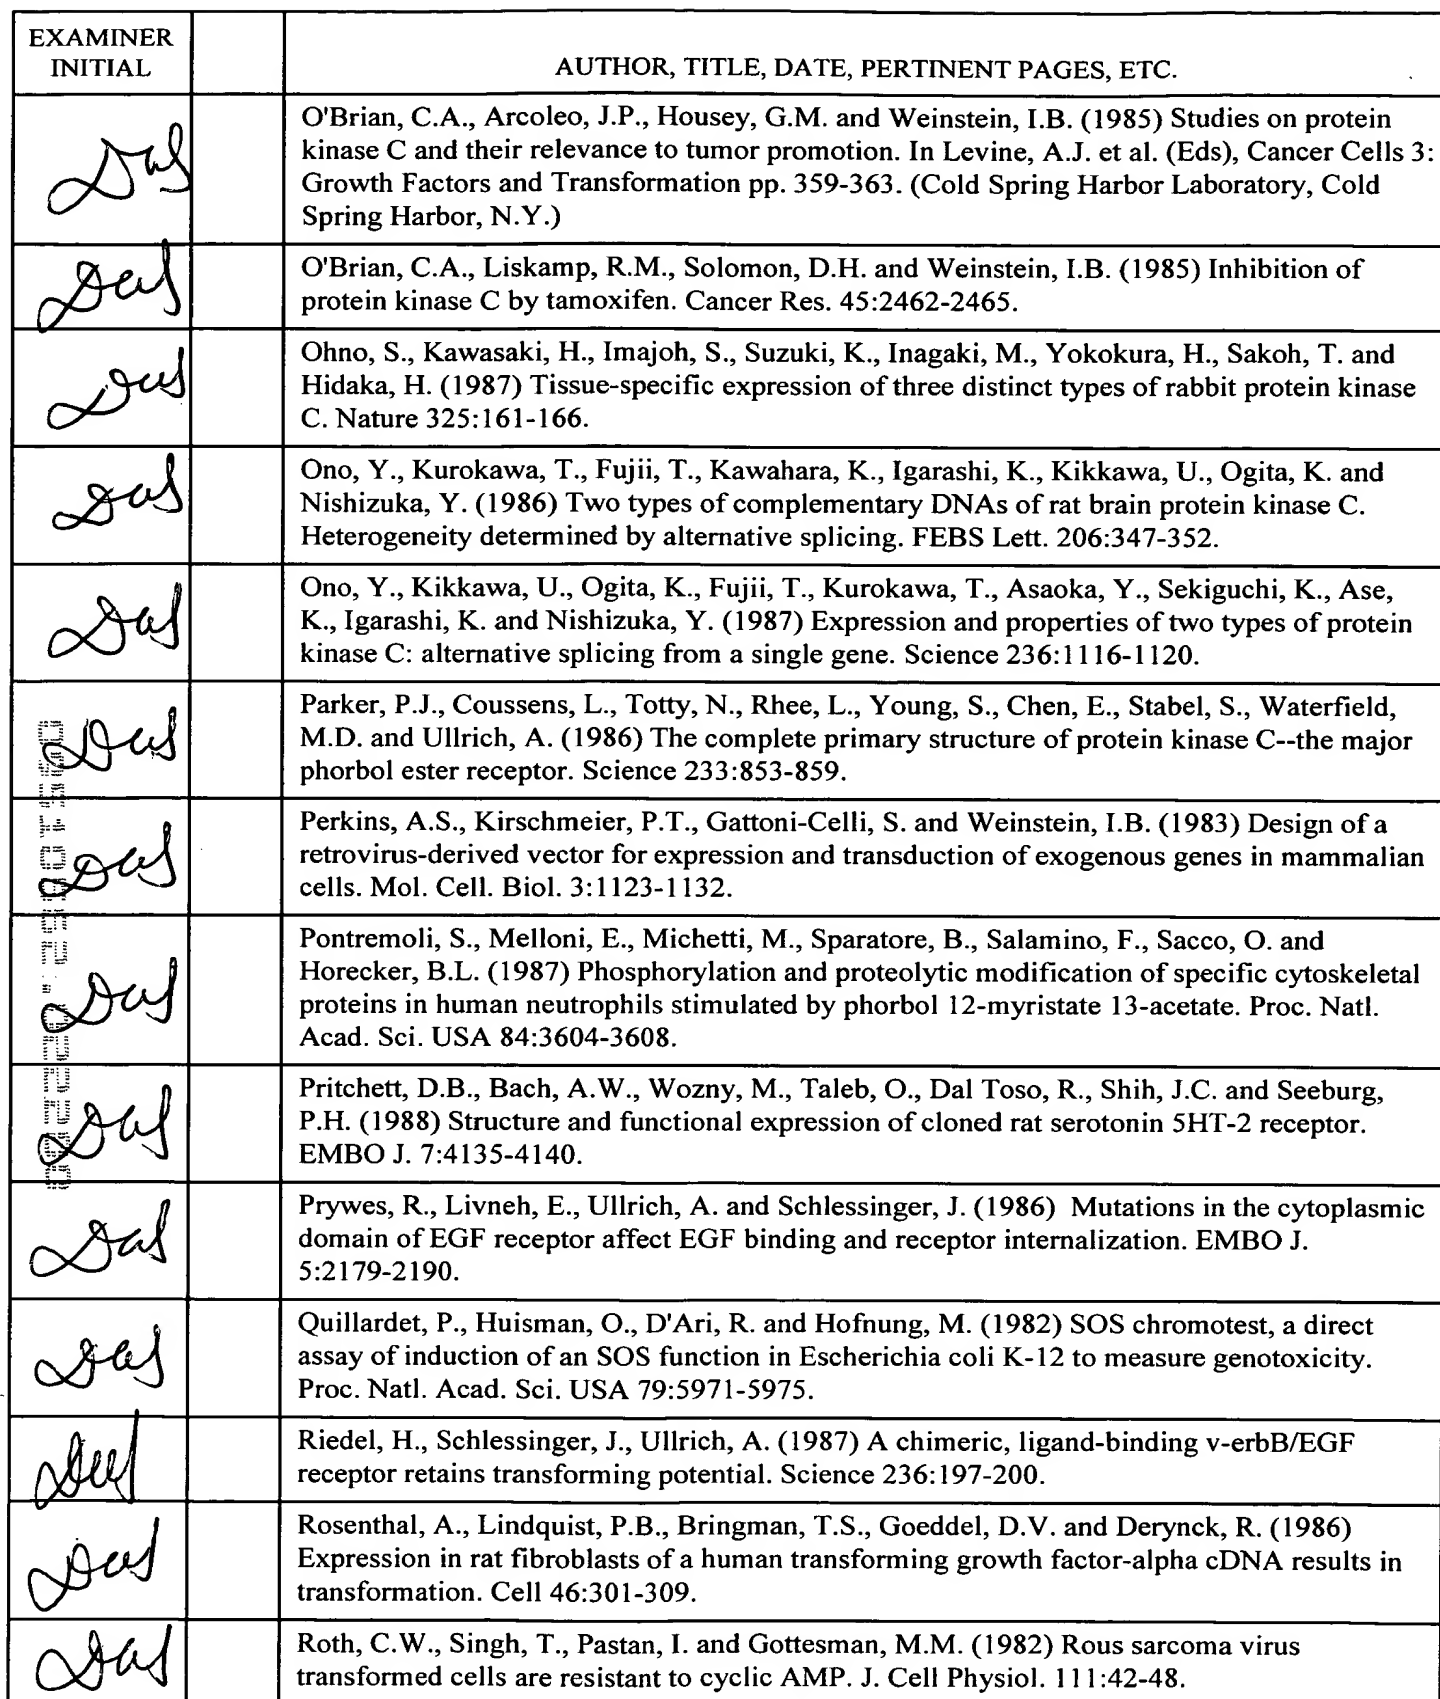 EXAMINER
INITIAL
AUTHOR, TITLE, DATE, PERTINENT PAGES, ETC.
O'Brian, C.A., Arcoleo, J.P., Housey, G.M. and Weinstein, I.B. (1985) Studies on protein
kinase C and their relevance to tumor promotion. In Levine, A.J. et al. (Eds), Cancer Cells 3:
Growth Factors and Transformation pp. 359-363. (Cold Spring Harbor Laboratory, Cold
Spring Harbor, N.Y.)
O'Brian, C.A., Liskamp, R.M., Solomon, D.H. and Weinstein, I.B. (1985) Inhibition of
protein kinase C by tamoxifen. Cancer Res. 45:2462-2465.
Ohno, S., Kawasaki, H., Imajoh, S., Suzuki, K., Inagaki, M., Yokokura, H., Sakoh, T. and
Hidaka, H. (1987) Tissue-specific expression of three distinct types of rabbit protein kinase
C. Nature 325:161-166.
Ono, Y., Kurokawa, T., Fujii, T., Kawahara, K., Igarashi, K., Kikkawa, U., Ogita, K. and
Nishizuka, Y. (1986) Two types of complementary DNAs of rat brain protein kinase C.
Heterogeneity determined by alternative splicing. FEBS Lett. 206:347-352.
Ono, Y., Kikkawa, U., Ogita, K., Fujii, T., Kurokawa, T., Asaoka, Y., Sekiguchi, K., Ase,
K., Igarashi, K. and Nishizuka, Y. (1987) Expression and properties of two types of protein
kinase C: alternative splicing from a single gene. Science 236:1116-1120.
Parker, P.J., Coussens, L., Totty, N., Rhee, L., Young, S., Chen, E., Stabel, S., Waterfield,
M.D. and Ullrich, A. (1986) The complete primary structure of protein kinase C--the major
phorbol ester receptor. Science 233:853-859.
Perkins, A.S., Kirschmeier, P.T., Gattoni-Celli, S. and Weinstein, I.B. (1983) Design of a
retrovirus-derived vector for expression and transduction of exogenous genes in mammalian
cells. Mol. Cell. Biol. 3:1123-1132.
Pontremoli, S., Melloni, E., Michetti, M., Sparatore, B., Salamino, F., Sacco, O. and
Horecker, B.L. (1987) Phosphorylation and proteolytic modification of specific cytoskeletal
proteins in human neutrophils stimulated by phorbol 12-myristate 13-acetate. Proc. Natl.
Acad. Sci. USA 84:3604-3608.
Pritchett, D.B., Bach, A.W., Wozny, M., Taleb, O., Dal Toso, R., Shih, J.C. and Seeburg,
P.H. (1988) Structure and functional expression of cloned rat serotonin 5HT-2 receptor.
EMBO J. 7:4135-4140.
Prywes, R., Livneh, E., Ullrich, A. and Schlessinger, J. (1986) Mutations in the cytoplasmic
domain of EGF receptor affect EGF binding and receptor internalization. EMBO J.
5:2179-2190.
Quillardet, P., Huisman, O., D'Ari, R. and Hofnung, M. (1982) SOS chromotest, a direct
assay of induction of an SOS function in Escherichia coli K-12 to measure genotoxicity.
Proc. Natl. Acad. Sci. USA 79:5971-5975.
Riedel, H., Schlessinger, J., Ullrich, A. (1987) A chimeric, ligand-binding v-erbB/EGF
receptor retains transforming potential. Science 236:197-200.
Rosenthal, A., Lindquist, P.B., Bringman, T.S., Goeddel, D.V. and Derynck, R. (1986)
Expression in rat fibroblasts of a human transforming growth factor-alpha cDNA results in
transformation. Cell 46:301-309.
Roth, C.W., Singh, T., Pastan, I. and Gottesman, M.M. (1982) Rous sarcoma virus
transformed cells are resistant to cyclic AMP. J. Cell Physiol. 111:42-48.